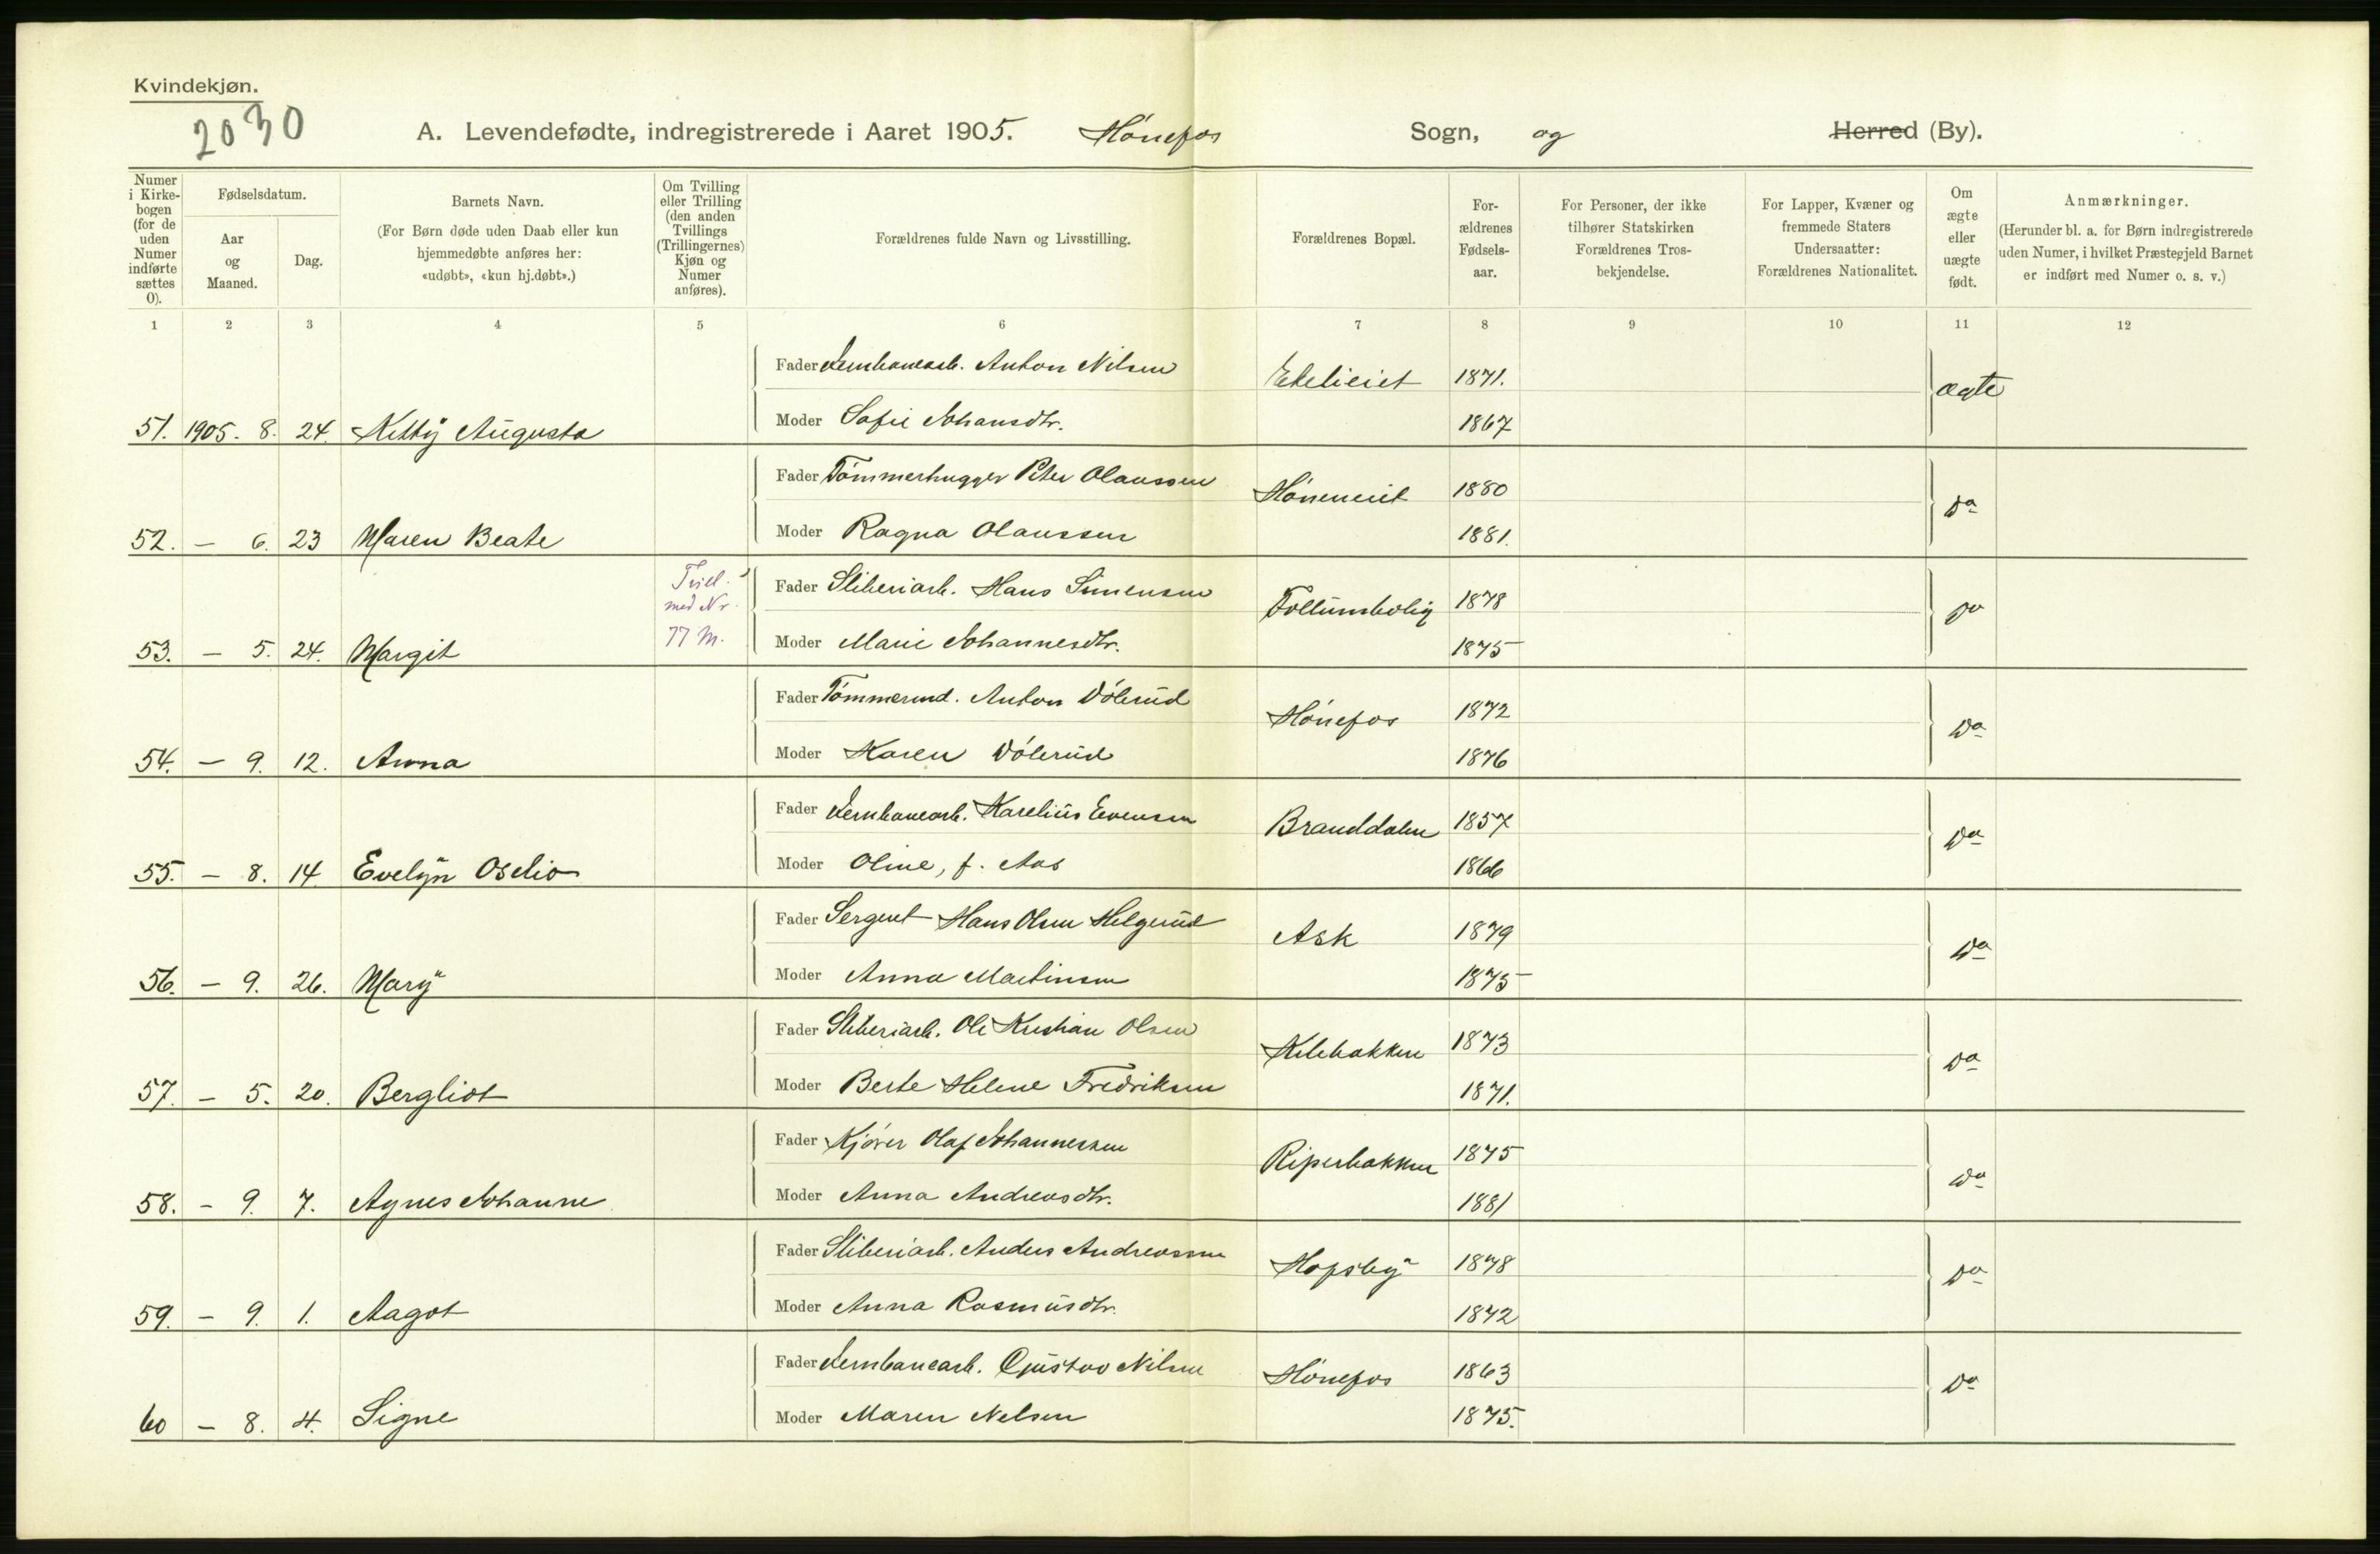 Kvindekjøn.
2030
A. Levendefødte, indregistrerede i Aaret 1905. Hönefos Sogn, og Herred (By).
Numer i Kirkebogen (for de uden Numer indførte sættes 0).
Fødselsdatum.
Aar og Maaned.
Dag.
Barnets Navn.
(For Børn døde uden Daab eller kun hjemmedøbte anføres her: «udøbt», «kun hj.døbt».)
Om Tvilling eller Trilling (den anden Tvillings (Trillingernes) Kjøn og Numer anføres).
Forældrenes fulde Navn og Livsstilling.
Forældrenes Bopæl.
Forældrenes Fødselsaar.
For Personer, der ikke tilhører Statskirken Forældrenes Trosbekjendelse.
For Lapper, Kvæner og fremmede Staters Undersaatter: Forældrenes Nationalitet.
Om ægte eller uægte født.
Anmærkninger.
(Herunder bl. a. for Børn indregistrerede uden Numer, i hvilket Præstegjeld Barnet er indført med Numer o. s. v.)
1 2 3 4 5 6 7 8 9 10 11 12
Fader Jernbanearb. Anton Nilsen 1871. ægte
51. 1905. 8. 24. Kitty Augusta Moder Sofie Johansdtr. 1867
Fader Tömmerhugger Peter Olaussen Höneneiet 1880 Do
52. — 6. 23 Maren Beate Moder Ragna Olaussen 1881.
Tvill. med Nr. 77 M.
Fader Sliberiarb. Hans Simensen Follumsbolig 1878 Do
53. — 5. 24. Margit Moder Marie Johannesdtr. 1875
Fader Tömmermd. Anton Dölerud Hönefos 1872 Do
54. — 9. 12. Anna Moder Karen Dölerud 1876
Fader Jernbanearb. Karelius Evensen Branddalen 1857 Do
55. — 8. 14. Evelyn Oselio Moder Oline, f. Aas 1866
Fader Sergent Hans Olsen Helgerud Ask 1879 Do
56. — 9. 26. Mary Moder Anna Martinsen 1875
Fader Sliberiarb. Ole Kristian Olsen Kilebakken 1873 Do
57. — 5. 20. Bergliot Moder Berte Helene Fredriksen 1871.
Fader Kjörer Olaf Johannessen Riperbakken 1875 Do
58. — 9. 7. Agnes Johanne Moder Anna Andreasdtr. 1881
Fader Sliberiarb. Anders Andreassen Hofsby 1878 Do
59. — 9. 1. Aagot Moder Anna Rasmusdtr. 1872
Fader Jernbanearb. Gustav Nilsen Hönefos 1863 Do
60 — 8. 4. Signe Moder Maren Nelsen 1875.